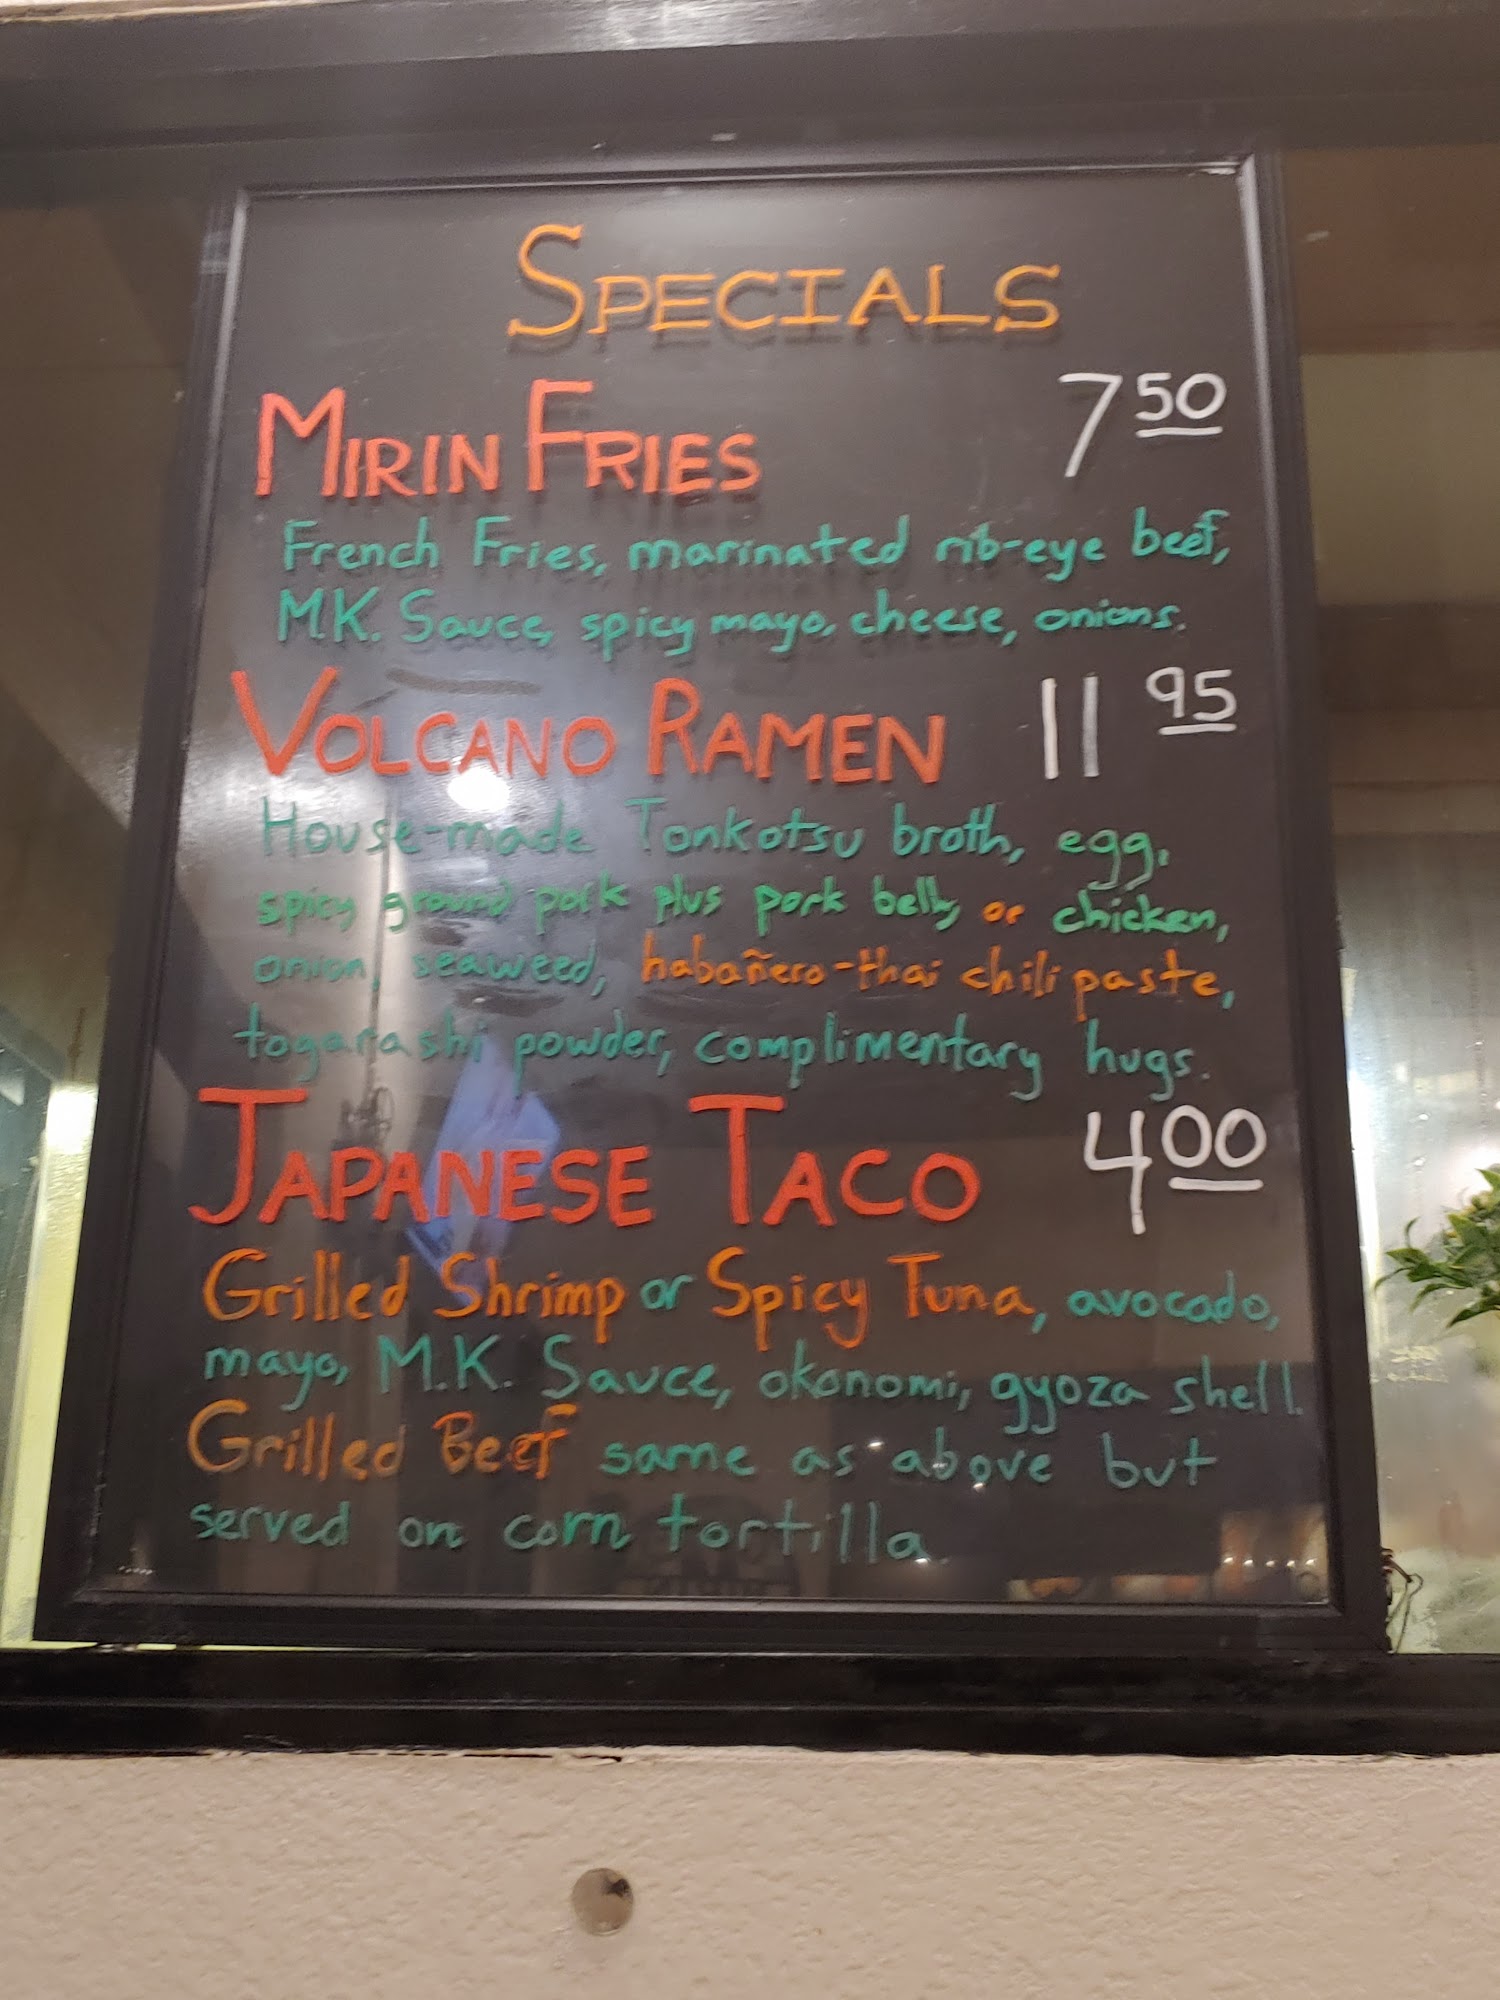 SPECIALS
MIRIN FRIES 7 50
French Fries, marinated rib-eye beef,
M.K. Sauce, spicy mayo, cheese, onions.
VOLCANO RAMEN 11 95
House-made Tonkotsu broth, egg,
spicy ground pork plus pork belly, or chicken,
onion, seaweed, habañero-thai chili paste,
togarashi powder, complimentary hugs.
JAPANESE TACO 4 00
Grilled Shrimp or Spicy Tuna, avocado,
mayo, M.K. Sauce, okonomi, gyoza shell.
Grilled Beef same as above but
served on corn tortilla.